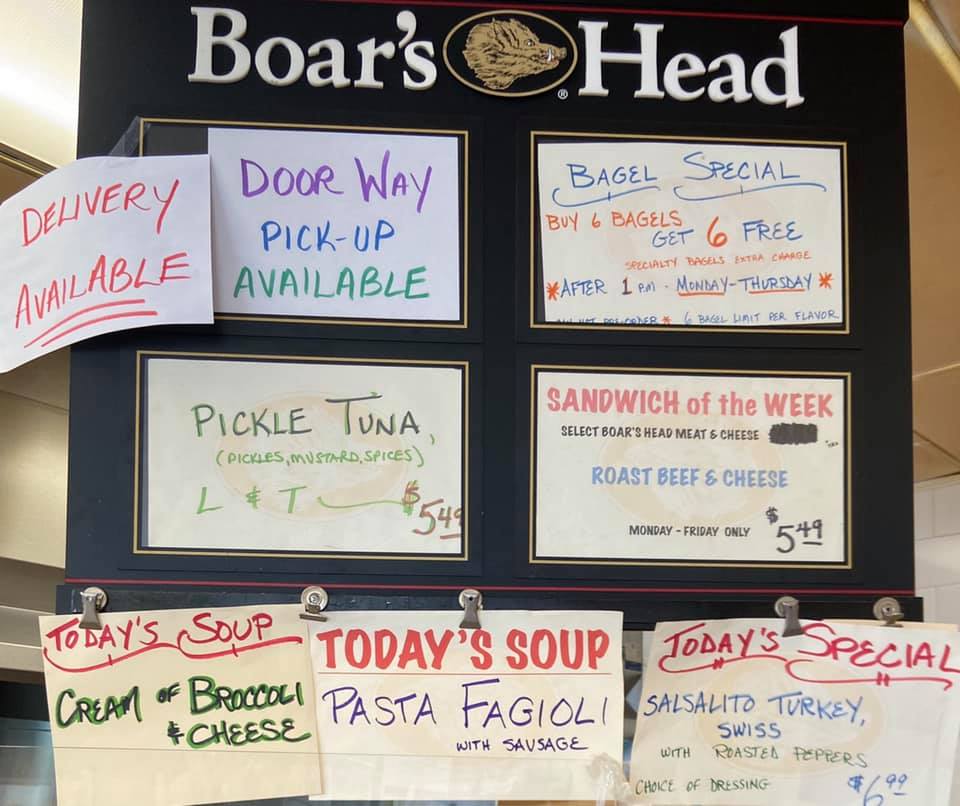 Boar's Head
®
DELIVERY
AVAILABLE
DOOR WAY
PICK-UP
AVAILABLE
BAGEL SPECIAL
BUY 6 BAGELS
GET 6 FREE
SPECIALTY BAGELS EXTRA CHARGE
*AFTER 1 PM - MONDAY-THURSDAY *
PRE-ORDER * 6 BAGEL LIMIT PER FLAVOR
PICKLE TUNA,
(PICKLES, MUSTARD, SPICES)
L & T $5.49
SANDWICH of the WEEK
SELECT BOAR'S HEAD MEAT & CHEESE
ROAST BEEF & CHEESE
MONDAY - FRIDAY ONLY $5.49
TODAY'S SOUP
CREAM OF BROCCOLI
& CHEESE
TODAY'S SOUP
PASTA FAGIOLI
WITH SAUSAGE
TODAY'S SPECIAL
SALSALITO TURKEY,
SWISS
WITH ROASTED PEPPERS
CHOICE OF DRESSING $6.99